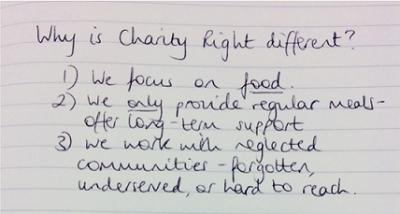 Why is Charity Right different?
1) We focus on food.
2) We only provide regular meals-
offer long-term support
3) we work with neglected
communities - forgotten,
underserved, or hard to reach.